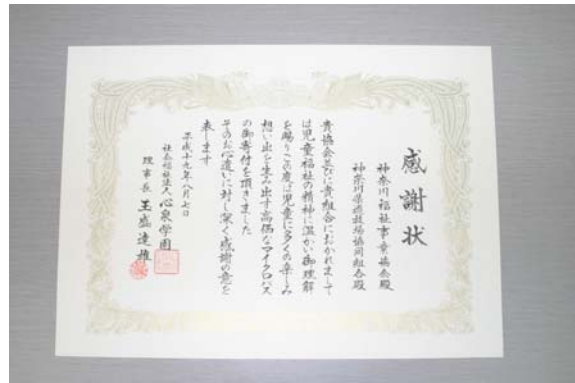 感謝状
神奈川福祉事業協会殿
神奈川県遊技場協同組合殿
貴協会並びに貴組合におかれまして
は児童福祉の精神に温かい御理解
を賜りこの度は児童に多くの楽しみ
想い出を生み出す高価なマイクロバス
の御寄付を頂きました
そのお心遣いに対し深く感謝の意を
表します
平成十九年八月七日
社会福祉法人心泉学園
理事長